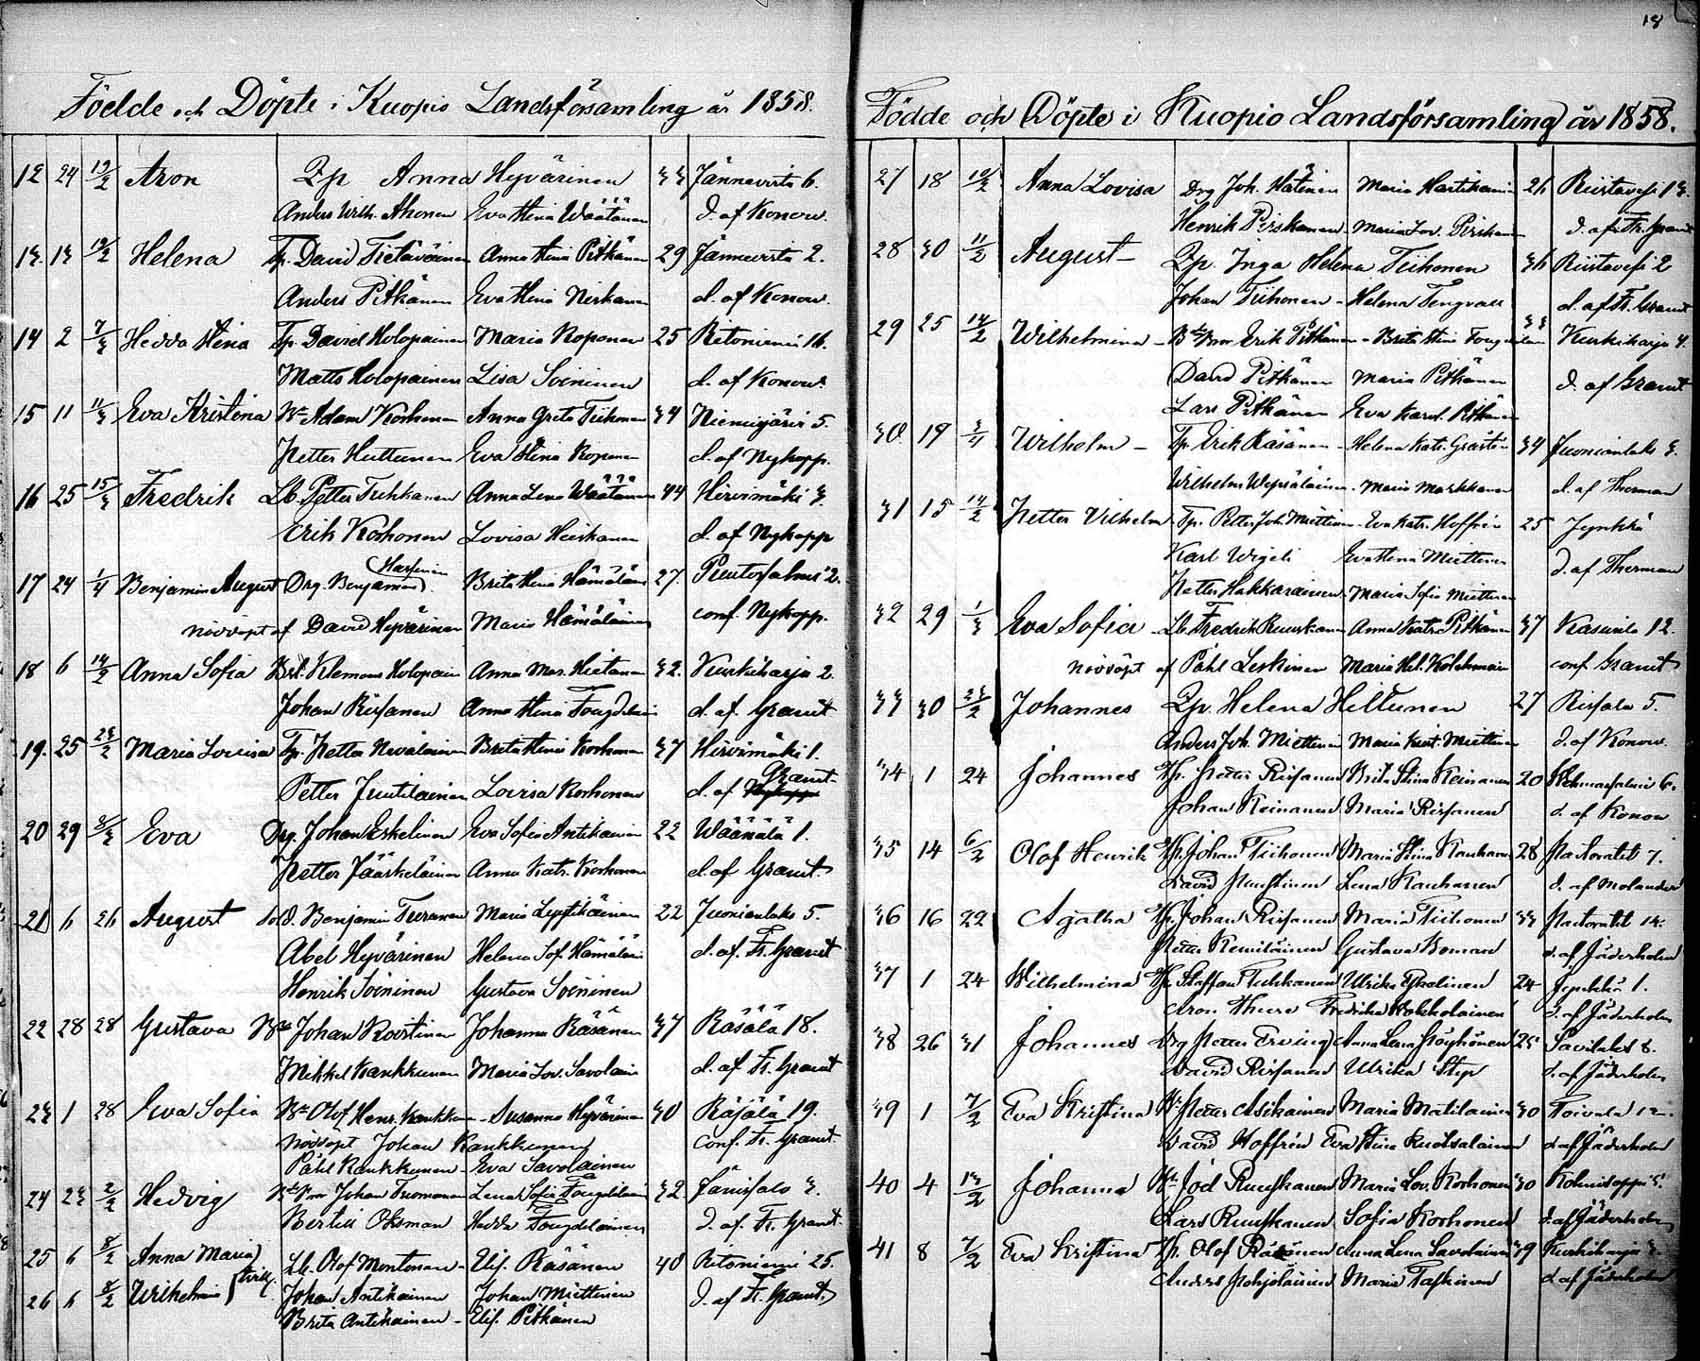 Födde och Döpte i Kuopio Landsförsamling år 1858.
12 24 13/2 Aron Qp Anna Hyvärinen 33 Jännevirta 6.
Anders Wilh. Ahonen Eva Stina Wäätänen d. af Konow.
13. 13 13/2 Helena Tp. David Tietäväinen Anna Stina Pitkänen 29 Jännevirta 2.
Anders Pitkänen Eva Stina Niskanen d. af Konow.
14 2 7/3 Hedda Stina Tp. David Holopainen Maria Roponen 25 Retoniemi 16.
Matts Holopainen Lisa Soininen d. af Konow.
15 11 11/3 Eva Kristina Adam Korhonen Anna Greta Tiihonen 34 Niemisjärvi 5.
Petter Huttunen Eva Stina Roponen d. af Nykopp.
16 25 15/3 Fredrik Lb. Petter Tuhkanen Anna Lena Wäätänen 44 Hirvimäki 3.
Erik Korhonen Lovisa Heiskanen d. af Nykopp
17 24 1/4 Benjamin August Drg. Benjamin Brita Stina Hämäläinen 27. 2.
nöddöpt af David Hyvärinen Maria Hämäläinen conf. Nykopp.
18 6 14/2 Anna Sofia Klemens Holopainen Anna Mar. Hietanen 32. Kurkiharju 2
Johan Riisanen Anna Stina Fougdelainen d. af Granit
19. 25 23/2 Maria Lovisa Tp. Petter Nevalainen Brita Stina Korhonen 37 Hirvimäki 1.
Petter Juutilainen Lovisa Korhonen d. af Granit
20 29 Eva Drg. Johan Eskelinen Eva Sofia Antikainen 22 Wäänälä 1.
Petter Jääskeläinen Anna Katr. Korhonen d. af Granit.
21 6 26 August Sold. Benjamin Turunen Maria Lyytikäinen 22 Juonionlaks 5.
Abel Hyvärinen Helena Sof. Hämäläin d. af. Fr. Granit
Henrik Soininen Gustava Soininen
22 28 28 Gustava Johan Koistinen Johanna Räsänen 37 Räsälä 18.
Mikkel Kankkunen Maria Lov. Savolain d. af Fr. Granit
23 1 28 Eva Sofia Olof Henr. Kankkunen Susanna Hyvärinen 30 Räsälä 19.
nöddöpt Johan Kankkunen conf. Fr. Granit
Påhl Kankkunen Eva Savolainen
24 23 2/2 Hedvig Johan Tuomanen Lena Sofia Fougdelain 32 Jänissalo 3.
Bertill Oksman Hedda Fougdelainen d. af. Fr. Granit.
25 6 8/2 Anna Maria Lb. Olof Montonen Elis. Räsänen 40 Retoniemi 25.
26 6 8/2 Wilhelmina tvill. Johan Antikainen Johan Miettinen d. af Fr. Granit.
Brita Antikainen Elis. Pitkänen
18
Födde och Döpte i Kuopio Landsförsamling år 1858.
27 18 10/2 Anna Lovisa Drg Joh. Hätinen Maria Hartikainen 26 Riistavesi 13.
Henrik Pirskanen Maria Lov. Pirskanen d. af Fr. Granit
28 30 11/2 August Qp. Inga Helena Tiihonen 36 Riistavesi 2
Johan Tiihonen Helena Tengvall d. af Fr. Granit
29 25 14/2 Wilhelmina Erik Pitkänen Brita Stina Fougdelain 33 Kurkiharju 4.
David Pitkänen Maria Pitkänen d. af Granit
Lars Pitkänen Eva Karol. Pitkänen
30 19 3/4 Wilhelm Tp. Erik Räsänen Helena Katr. Gråstén 34 Juonionlaks 3.
Wilhelm Wepsäläinen Maria Markkanen d. af Therman
31 15 14/2 Petter Vilhelm Tp. Petter Joh. Miettinen Eva Katr. Hoffrén 25 Jynkkä
Karl Wigeli Eva Stina Miettinen d. af Therman
Petter Hakkarainen Maria Sofia Miettinen
32 29 1/3 Eva Sofia Lb. Fredrik Ruuskanen Anna Katr. Pitkänen 37 Kasurila 12.
nöddöpt af Påhl Leskinen Maria Hel. Kolehmain conf. Granit
33 30 23/2 Johannes Qp. Helena Hiltunen 27 Riisala 5.
Anders Joh. Miettinen Maria Krist. Miettinen d. af Konow.
34 1 24 Johannes Petter Riisanen Brita Stina Keinanen 20 Wehmasalmi 6.
Johan Keinanen Maria Riisanen d. af Konow
35 14 6/2 Olof Henrik Johan Tiihonen Maria Stina Kauhanen 28 Pastoratet 7.
David Puustinen Lena Kauhanen d. af Molander
36 16 22 Agatha Johan Riisanen Maria Tiihonen 33 Pastoratet 14.
Petter Remiläinen Gustava Boman d. af Jäderholm
37 1 24 Wilhelmina Staffan Tuhkanen Ulrika Eskelinen 24 Jynkkä 1.
Aron Thure Fredrika Kokkolainen d. af Jäderholm
38 26 31 Johannes Drg Petter Erving Anna Lena Pöyhönen 25 Savilaks 8.
David Riisanen Ulrika d. af Jäderholm
39 1 7/2 Eva Kristina Petter Asikainen Maria Matilainen 30 Toivala 12.
David Hoffrén Eva Stina Ruotsalainen d. af Jäderholm
40 4 13/2 Johanna Jod Ruuskanen Maria Lov. Korhonen 30 Kolmisoppi 5.
Lars Ruuskanen Sofia Korhonen d. af Jäderholm
41 8 7/2 Eva Kristina Olof Räsänen Anna Lena Savolainen 39 Kurkiharju 3.
Anders Pohjolainen Maria Taskinen d. af Jäderholm